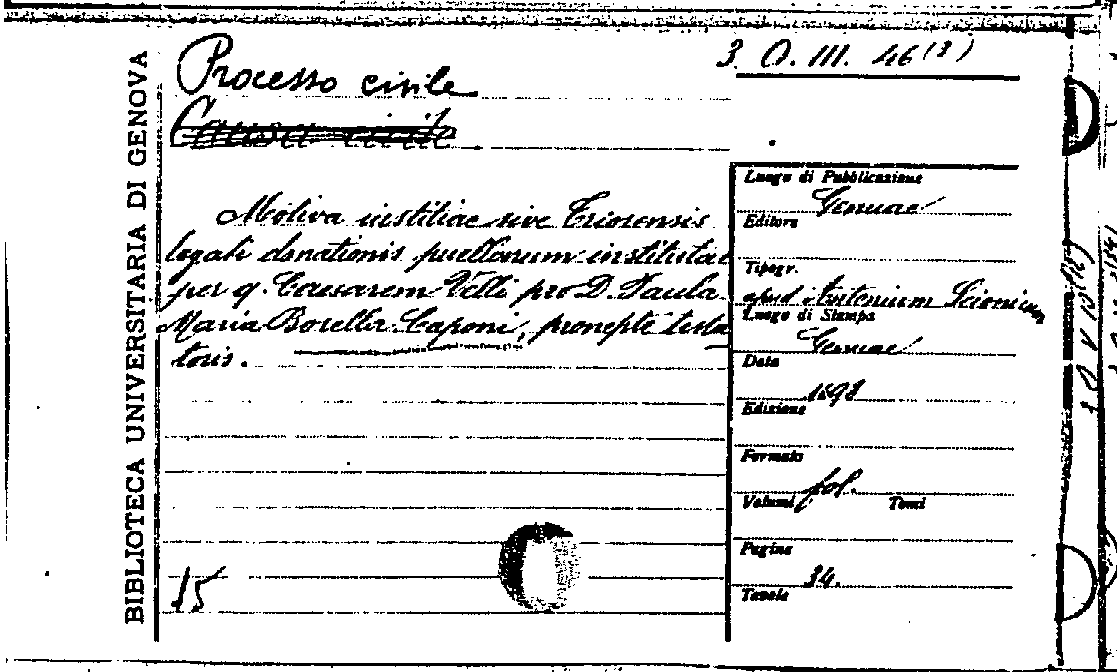 BIBLIOTECA UNIVERSITARIA DI GENOVA
3 O. III. 46 (3)
Processo civile
Causa civile
Motiva iustitiae sive Triorensis
legati donationis puellarum institutae
per q. Caesarem Velli pro D. Paula
Maria Borella Caponi, pronepte testa
toris.
15
Luogo di Pubblicazione
Genuae
Editore
Tipogr.
apud Antonium
Luogo di Stampa
Genuae
Data
1698
Edizione
Formato
fol.
Volumi Tomi
Pagine
34.
Tavole